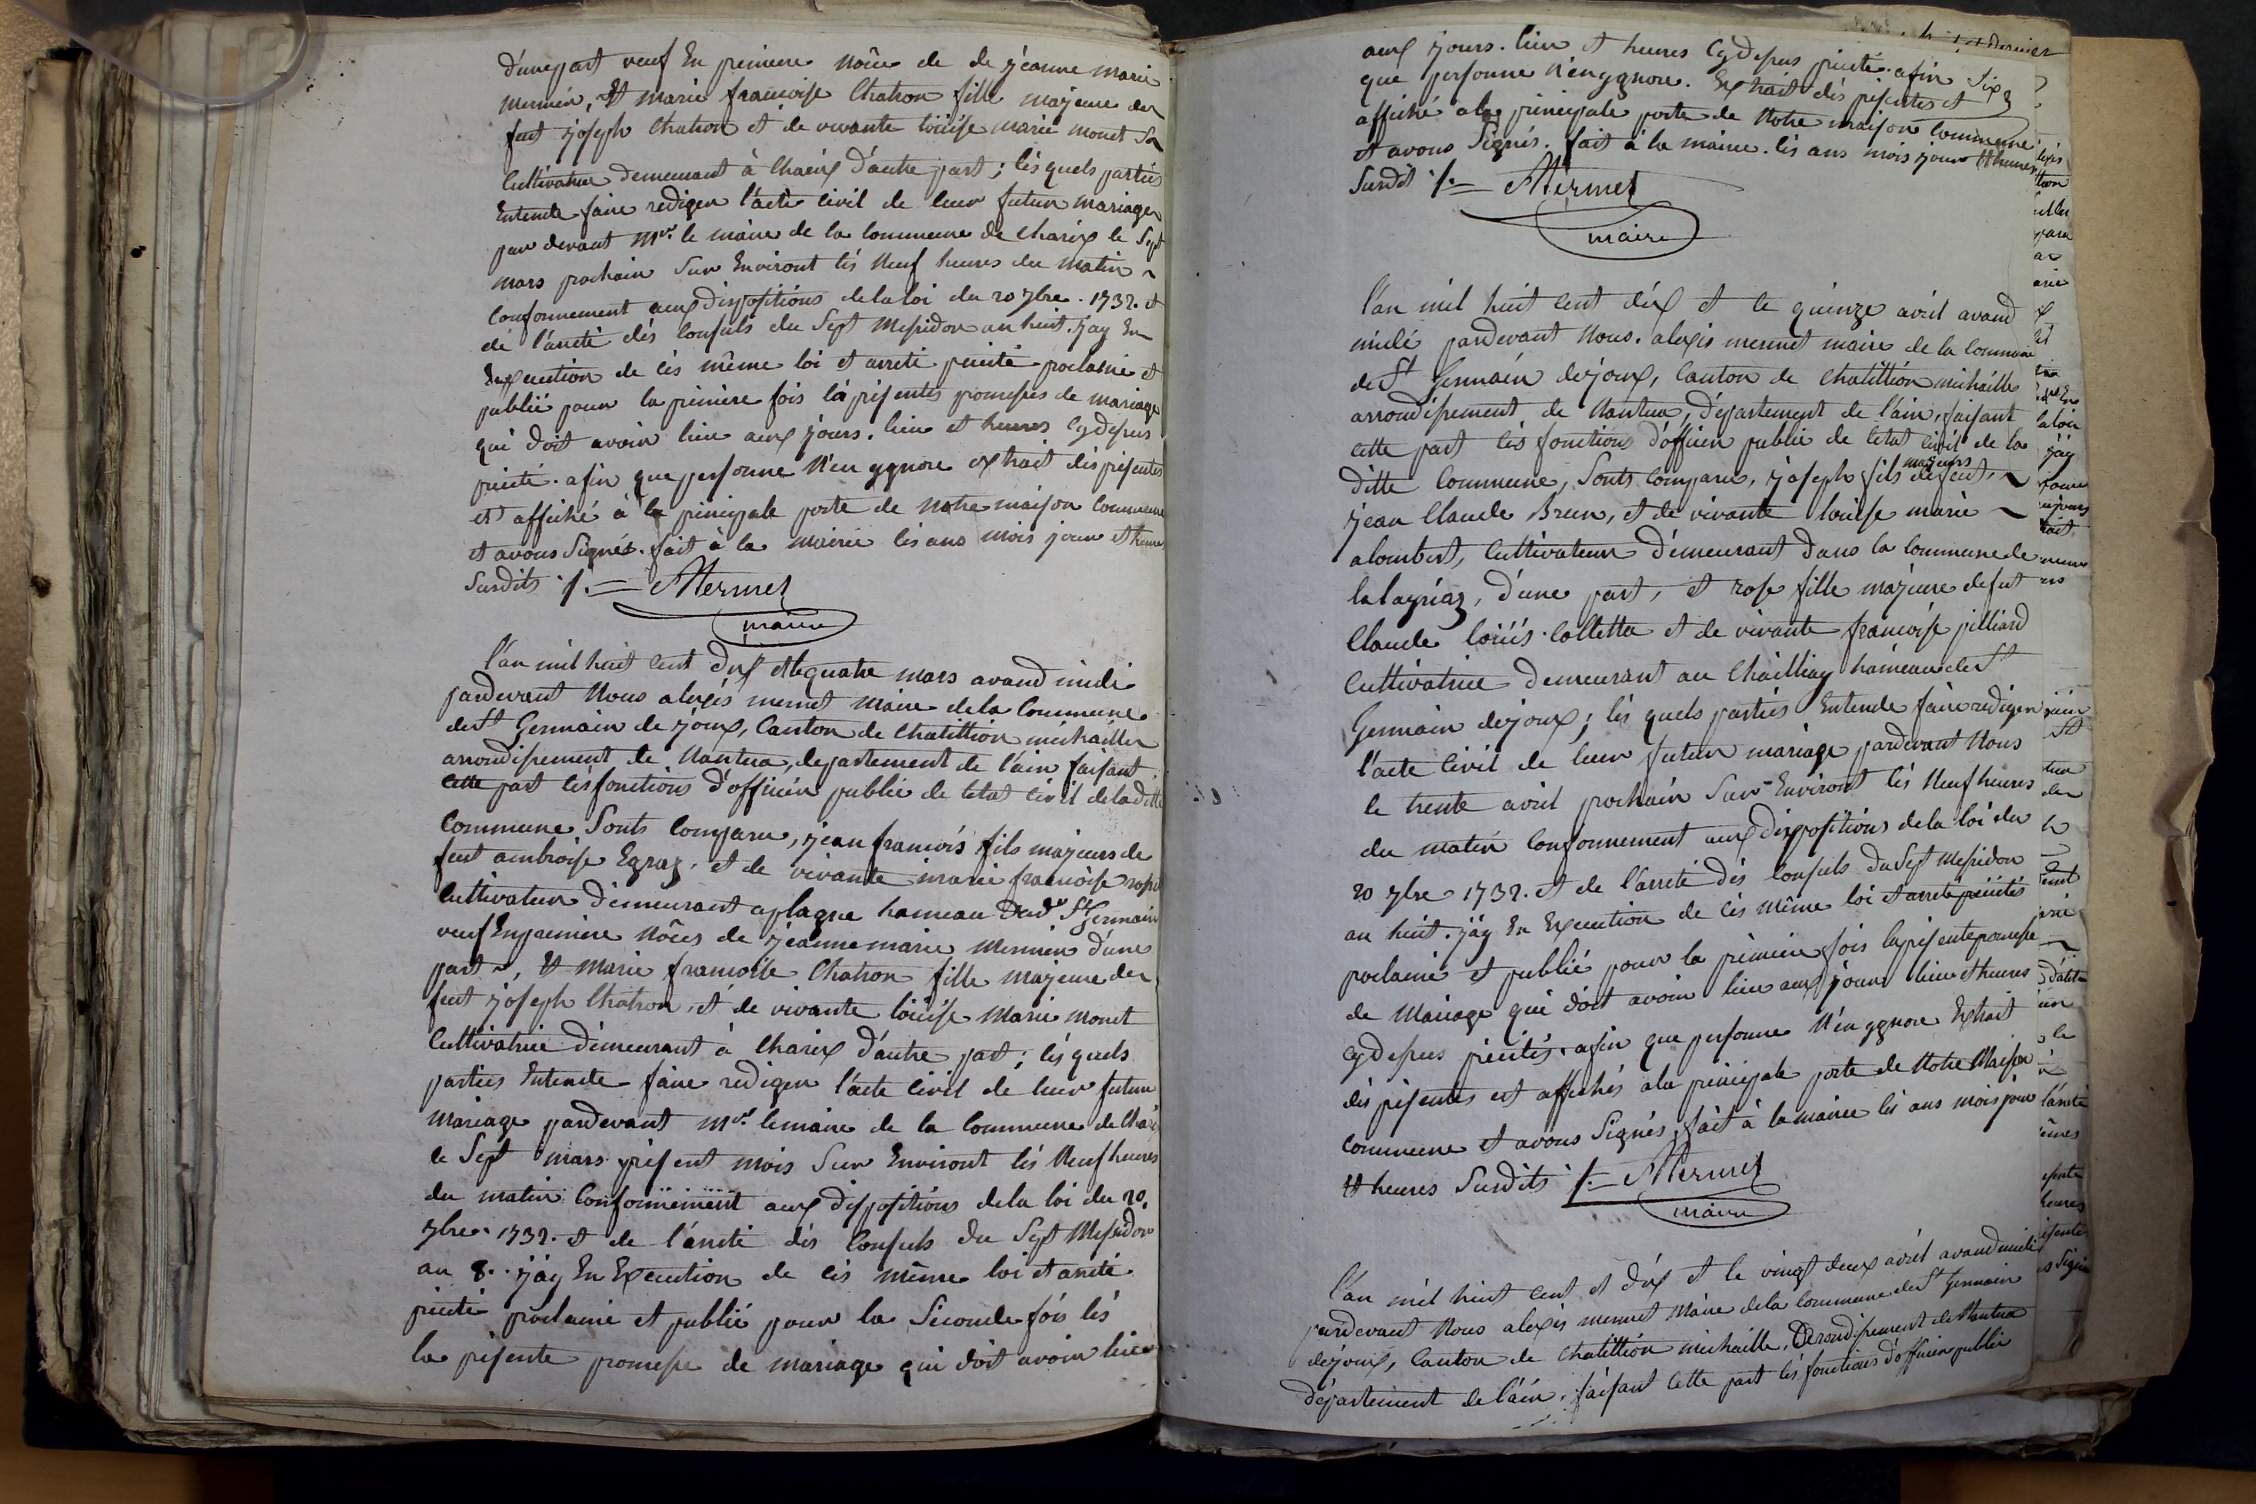 d'unepart veuf En premiere nôce de de jéanne marie
mermin, Et marie francoise Chatron fille majeure de
feut joseph Chatron et de vivante loüise marie monet
Cultivatrice demeurant à Charix d'autre part; lésquels partiés
Entende faire rediger l'acte Civil de leur futur mariage
par devant Mr. le maire de la Commune de Charix le Sept
mars prochain Sur Environt lés Neuf heures du matin
Conformement aux dispositions de la loi du 20 7bre. 1792. et
de l'arreté dés Consuls du Sept Messidor an huit. jay En
Execution de cés même loi et arreté précité proclamé et
publié pour la prémière fois la présentes promesses de mariage
qui doit avoir lieu aux jours. lieu et heures Cydessus
précité. afin que personne N'en ygnore extrait dés présentes
est affiché à la principale porte de notre maison Commune
et avons Signés. fait à la mairie lés ans mois jour et heures
Susdits ./. = AMermet
maire
l'an mil huit Cent dix et le quatre mars avand midi
pardevant Nous alexis mermet Maire de la Commune
de St Germain de joux, Canton de Chatillion michaille
arrondissement de Nantua, departement de l'ain faisant
Cette part lés fonctions d'officier public de letat Civil de la ditte
Commune Sonts Comparu, jean francois fils majeurs de
feut ambroise Egraz, et de vivante marie francoise
Cultivateur démeurant a hameau dud. St Germain
veuf En premiere Nôces de jeanne marie Mermin d'une
part, Et Marie francoise Chatron fille majeure de
feut joseph Chatron, et de vivante loüise Marie monet
Cultivatrice démeurant à Charix d'autre part; lésquels
parties Entende faire rediger l'acte Civil de leur futur
Mariage pardevant Mr. le maire de la Commune de
le Sept mars présent mois Sur Environt lés Neuf heures
du matin Conformement aux dispositions de la loi du 20.
7bre. 1792. et de l'arreté dés Consuls du Sept Messidor
an 8.. jáy En Execution de cés même loi et arreté
précité proclamé et publié pour la Seconde fois lés
la présente promesse de mariage qui doit avoir lieu
aux jours. lieu et heures Cydessus précité. afin
que personne N'en ygnore. Extrait dés présentes et
affiché a la principale porte de Notre maison Commune
et avons Signés. fait à la mairie. lés ans mois jour Et heures
Susdit ./. = AMermet
maire
l'an mil huit cent dix et le quinze avril avand
midi pardevant Nous. alexis mermet maire de la Commune
de St Germain dejoux, Canton de Chatillion michaille
arrondissement de Nantua, département de l'ain, faisant
Cette part lés fonctions d'officier public de letat Civil de la
ditte Commune, Sonts Comparu, joseph fils majeurs de feut
jean Claude Brun, et de vivante loüise marie
alombert, Cultivateur démeurant dans la Commune de
lalayriaz, d'une part, et rose fille majeure de fut
Claude loüis Colletta et de vivante francoise pilliard
Cultivatrice demeurant au Chailliay hameau de St
Germain dejoux; lés quels partiés Entende faire rediger
l'acte Civil de leur futur mariage pardevant Nous
le trente avril prochain Sur Environt lés Neuf heures
du matin Conformement aux dispositions de la loi du
20 7bre 1792. et de l'arreté dés Consuls du Sept Messidor
an huit. jáy En Execution de cés même loi et arreté précités
proclamé et publié pour la prémière fois la présente promesse
de Mariage qui doit avoir lieu aux jour lieu et heures
Cydessus précités. afin que personne N'en ygnore Extrait
dés présentes est affichés a la principale porte de Notre Maison
Commune et avons Signés, fait à la mairie lés ans mois jour
Et heures Susdits ./. = AMermet
maire
l'an mil huit Cent et dix et le vingt deux avril avand midi
pardevant Nous alexis mermet Maire de la Commune de St Germain
dejoux, Canton de Chatillion michaille. arrondissement de Nantua
département de l'ain. faisant Cette part lés fonctions d'officier public